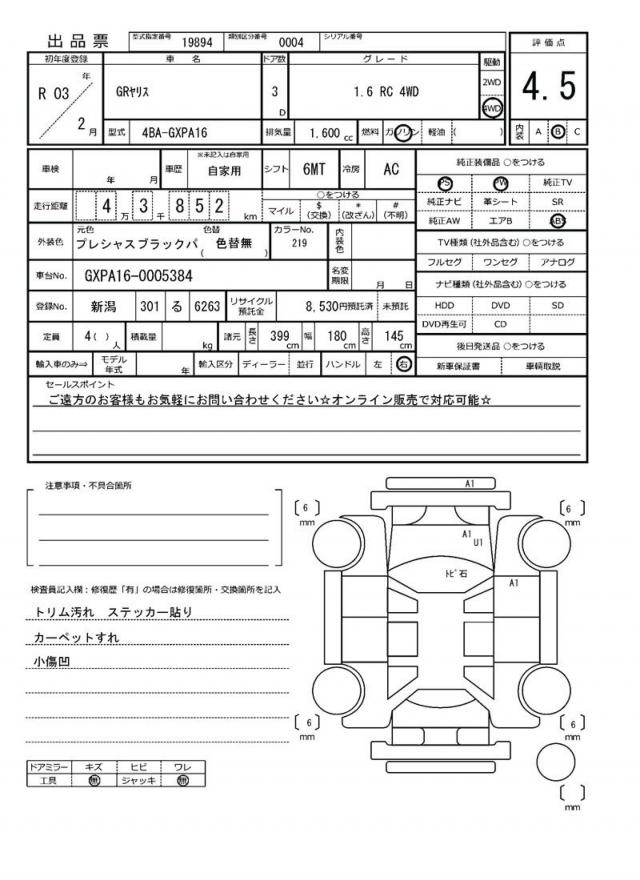 出品票 型式指定番号 19894 類別区分番号 0004 シリアル番号 評価点
初年度登録 車 名 ドア数 グレード 駆動
R 03 年 2 月 GRヤリス 3 D 1.6 RC 4WD 2WD 4WD 4.5
型式 4BA-GXPA16 排気量 1.600 cc 燃料 ガソリン 軽油 ( ) 内装 A B C
車検 年 月 車歴 ※未記入は自家用 自家用 シフト 6MT 冷房 AC 純正装備品 ○をつける
PS PW 純正TV
走行距離 4 万 3 千 8 5 2 km ○をつける マイル $ (交換) * (改ざん) # (不明) 純正ナビ 革シート SR
純正AW エアB ABS
外装色 元色 プレシャスブラックパ 色替 ( 色替無 ) カラーNo. 219 内装色 TV種類(社外品含む) ○をつける
フルセグ ワンセグ アナログ
車台No. GXPA16-0005384 名変期限 月 日 ナビ種類(社外品含む) ○をつける
登録No. 新潟 301 る 6263 リサイクル預託金 8,530円預託済 未預託 HDD DVD SD
DVD再生可 CD
定員 4( ) 人 積載量 kg 諸元 長さ 399 cm 幅 180 cm 高さ 145 cm 後日発送品 ○をつける
輸入車のみ⇒ モデル年式 年 輸入区分 ディーラー 並行 ハンドル 左 右 新車保証書 車輌取説
セールスポイント
ご遠方のお客様もお気軽にお問い合わせください☆オンライン販売で対応可能☆
注意事項・不具合箇所
検査員記入欄：修復歴「有」の場合は修復箇所・交換箇所を記入
トリム汚れ ステッカー貼り
カーペットすれ
小傷凹
ドアミラー キズ ヒビ ワレ
工具 無 ジャッキ 無
A1
6 mm
6 mm
A1
U1
トビ石
A1
6 mm
6 mm
mm